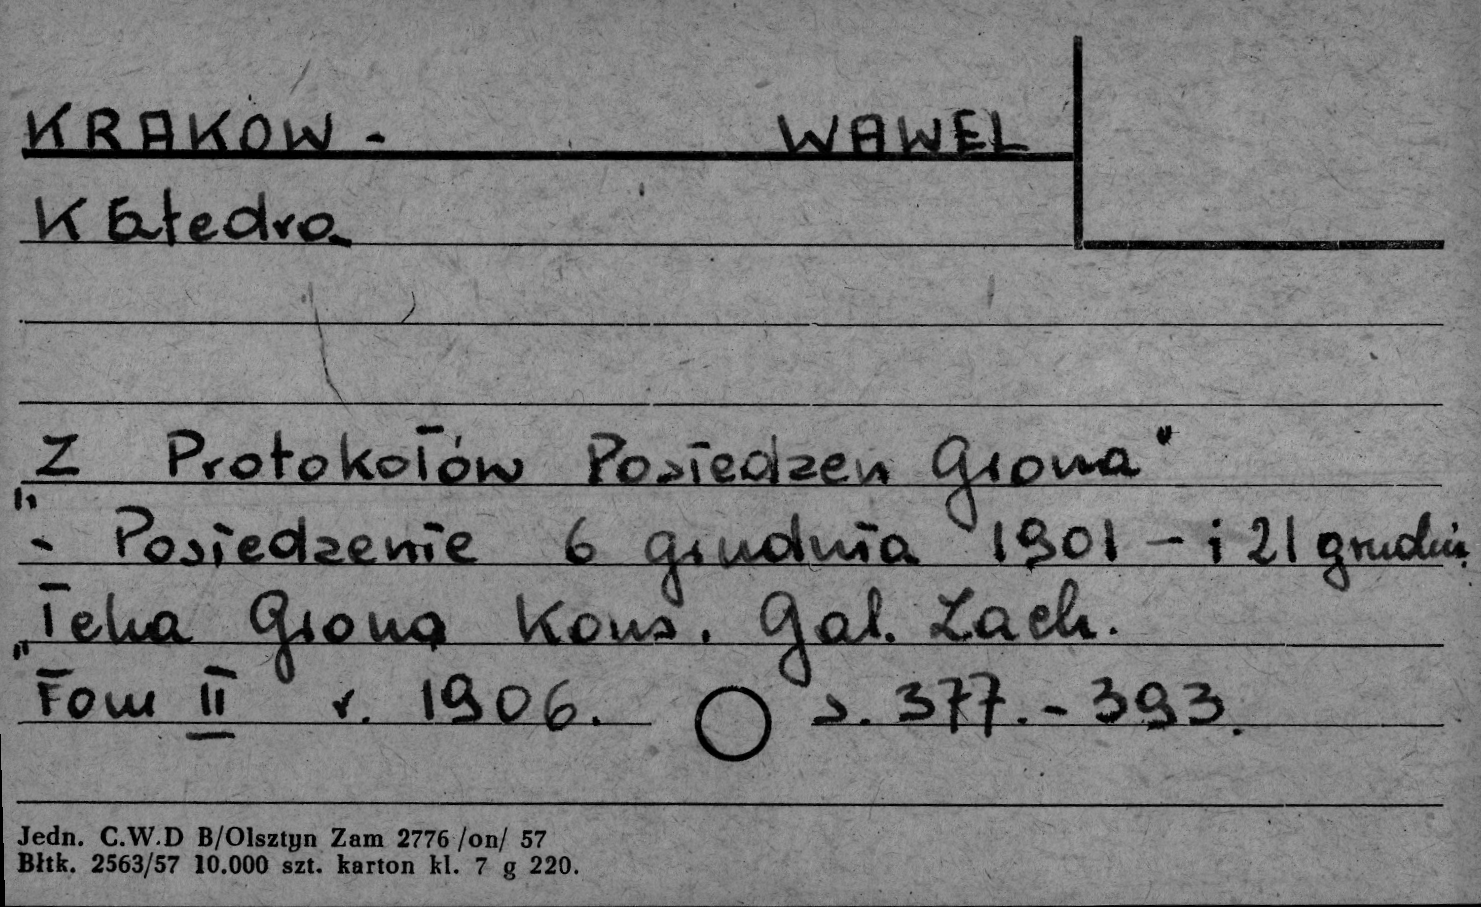 KRAKOW - WAWEL
Katedra
Z Protokołów Posiedzen Grona"
"- Posiedzenie 6 grudnia 1901 - i 21 grudnia
Teka Grona Kons. Gal. Zach.
„Tom II r. 1906. s. 377. - 393.
Jedn. C.W.D B/Olsztyn Zam 2776 /on/ 57
Błtk. 2563/57 10.000 szt. karton kl. 7 g 220.